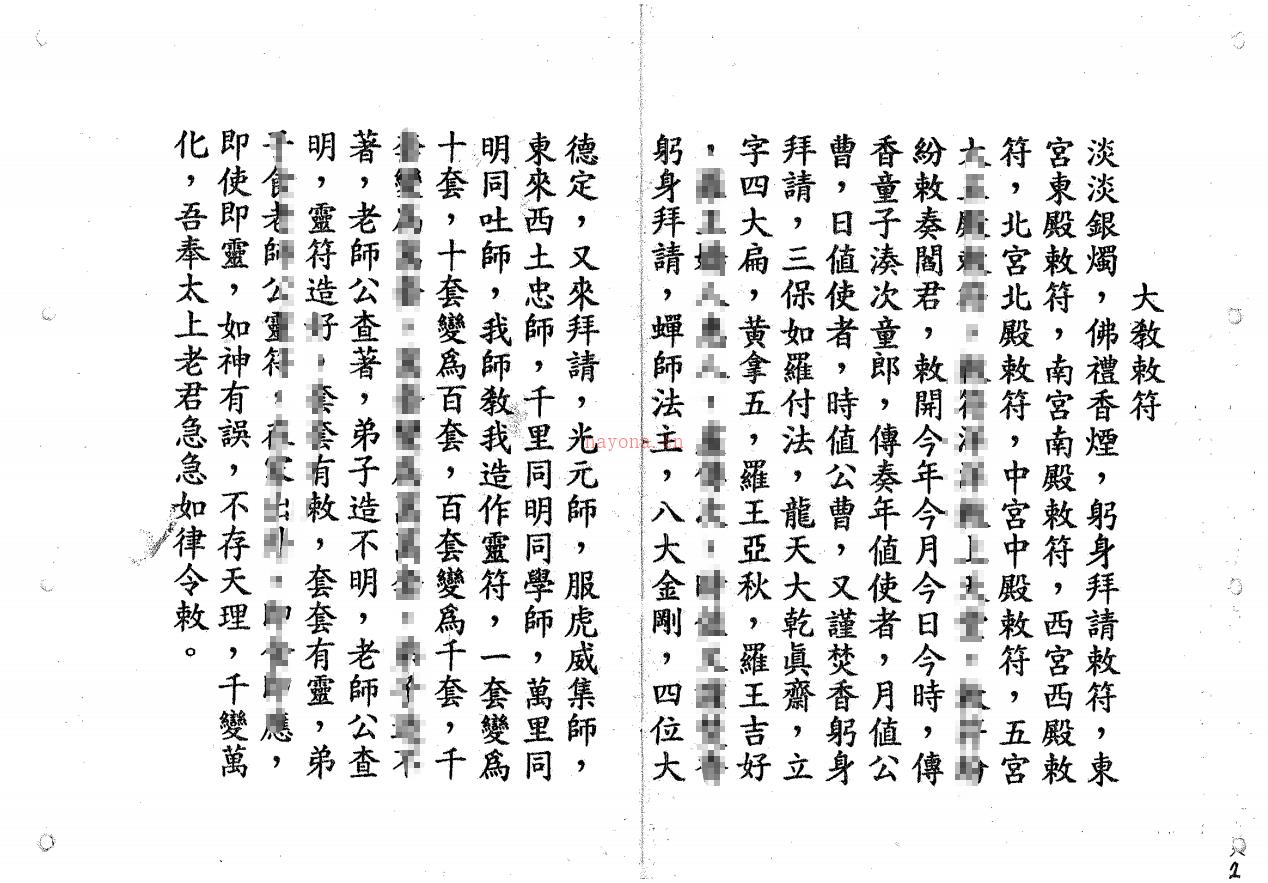 大教敕符
淡淡銀燭，佛禮香煙，躬身拜請敕符，東
宮東殿敕符，南宮南殿敕符，西宮西殿敕
符，北宮北殿敕符，中宮中殿敕符，五宮
紛敕奏閻君，敕開今年今月今日今時，傳
香童子湊次童郎，傳奏年值使者，月值公
曹，日值使者，時值公曹，又謹焚香躬身
拜請，三保如羅付法，龍天大乾眞齋，立
字四大扁，黄拿五，羅王亞秋，羅王吉好
躬身拜請，蟬師法主，八大金剛，四位大
德定，又來拜請，光元師，服虎威集師，
東來西土忠師，千里同明同學師，萬里同
明同吐師，我師教我造作靈符，一套變爲
十套，十套變爲百套，百套變爲千套，千
著，老師公查著，弟子造不明，老師公查
明，靈符造好，套套有敕，套套有靈，弟
老師公靈符，應，
即使即靈，如神有誤，不存天理，千變萬
化，吾奉太上老君急急如律令敕。
nayona.cn